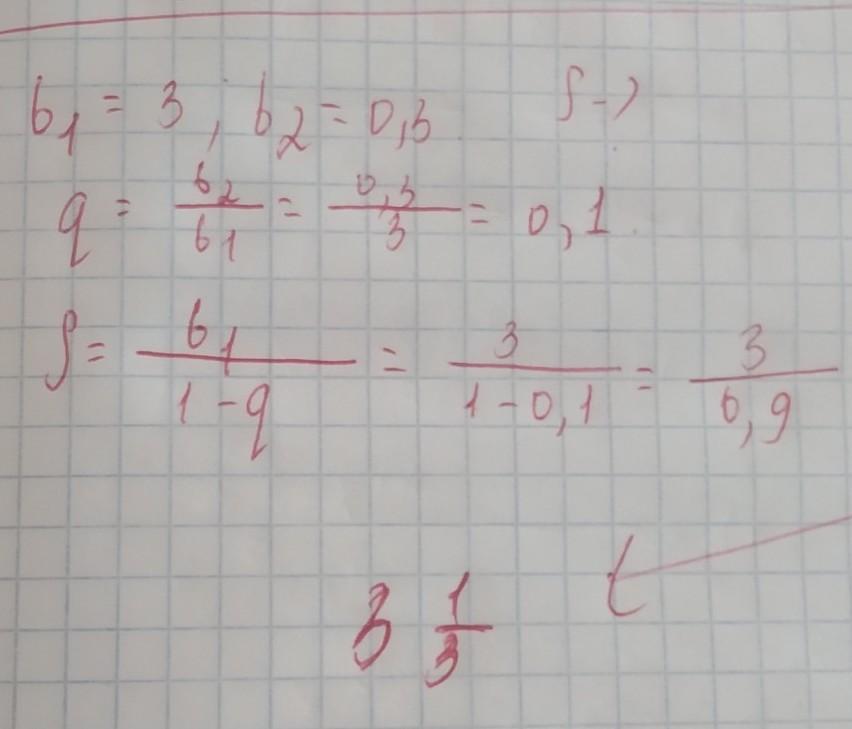 b₁ = 3 ; b₂ = 0,3 S -
q = b₂/b₁ = 0,3/3 = 0,1
S = b₁/(1 - q) = 3/(1 - 0,1) = 3/0,9
3 1/3